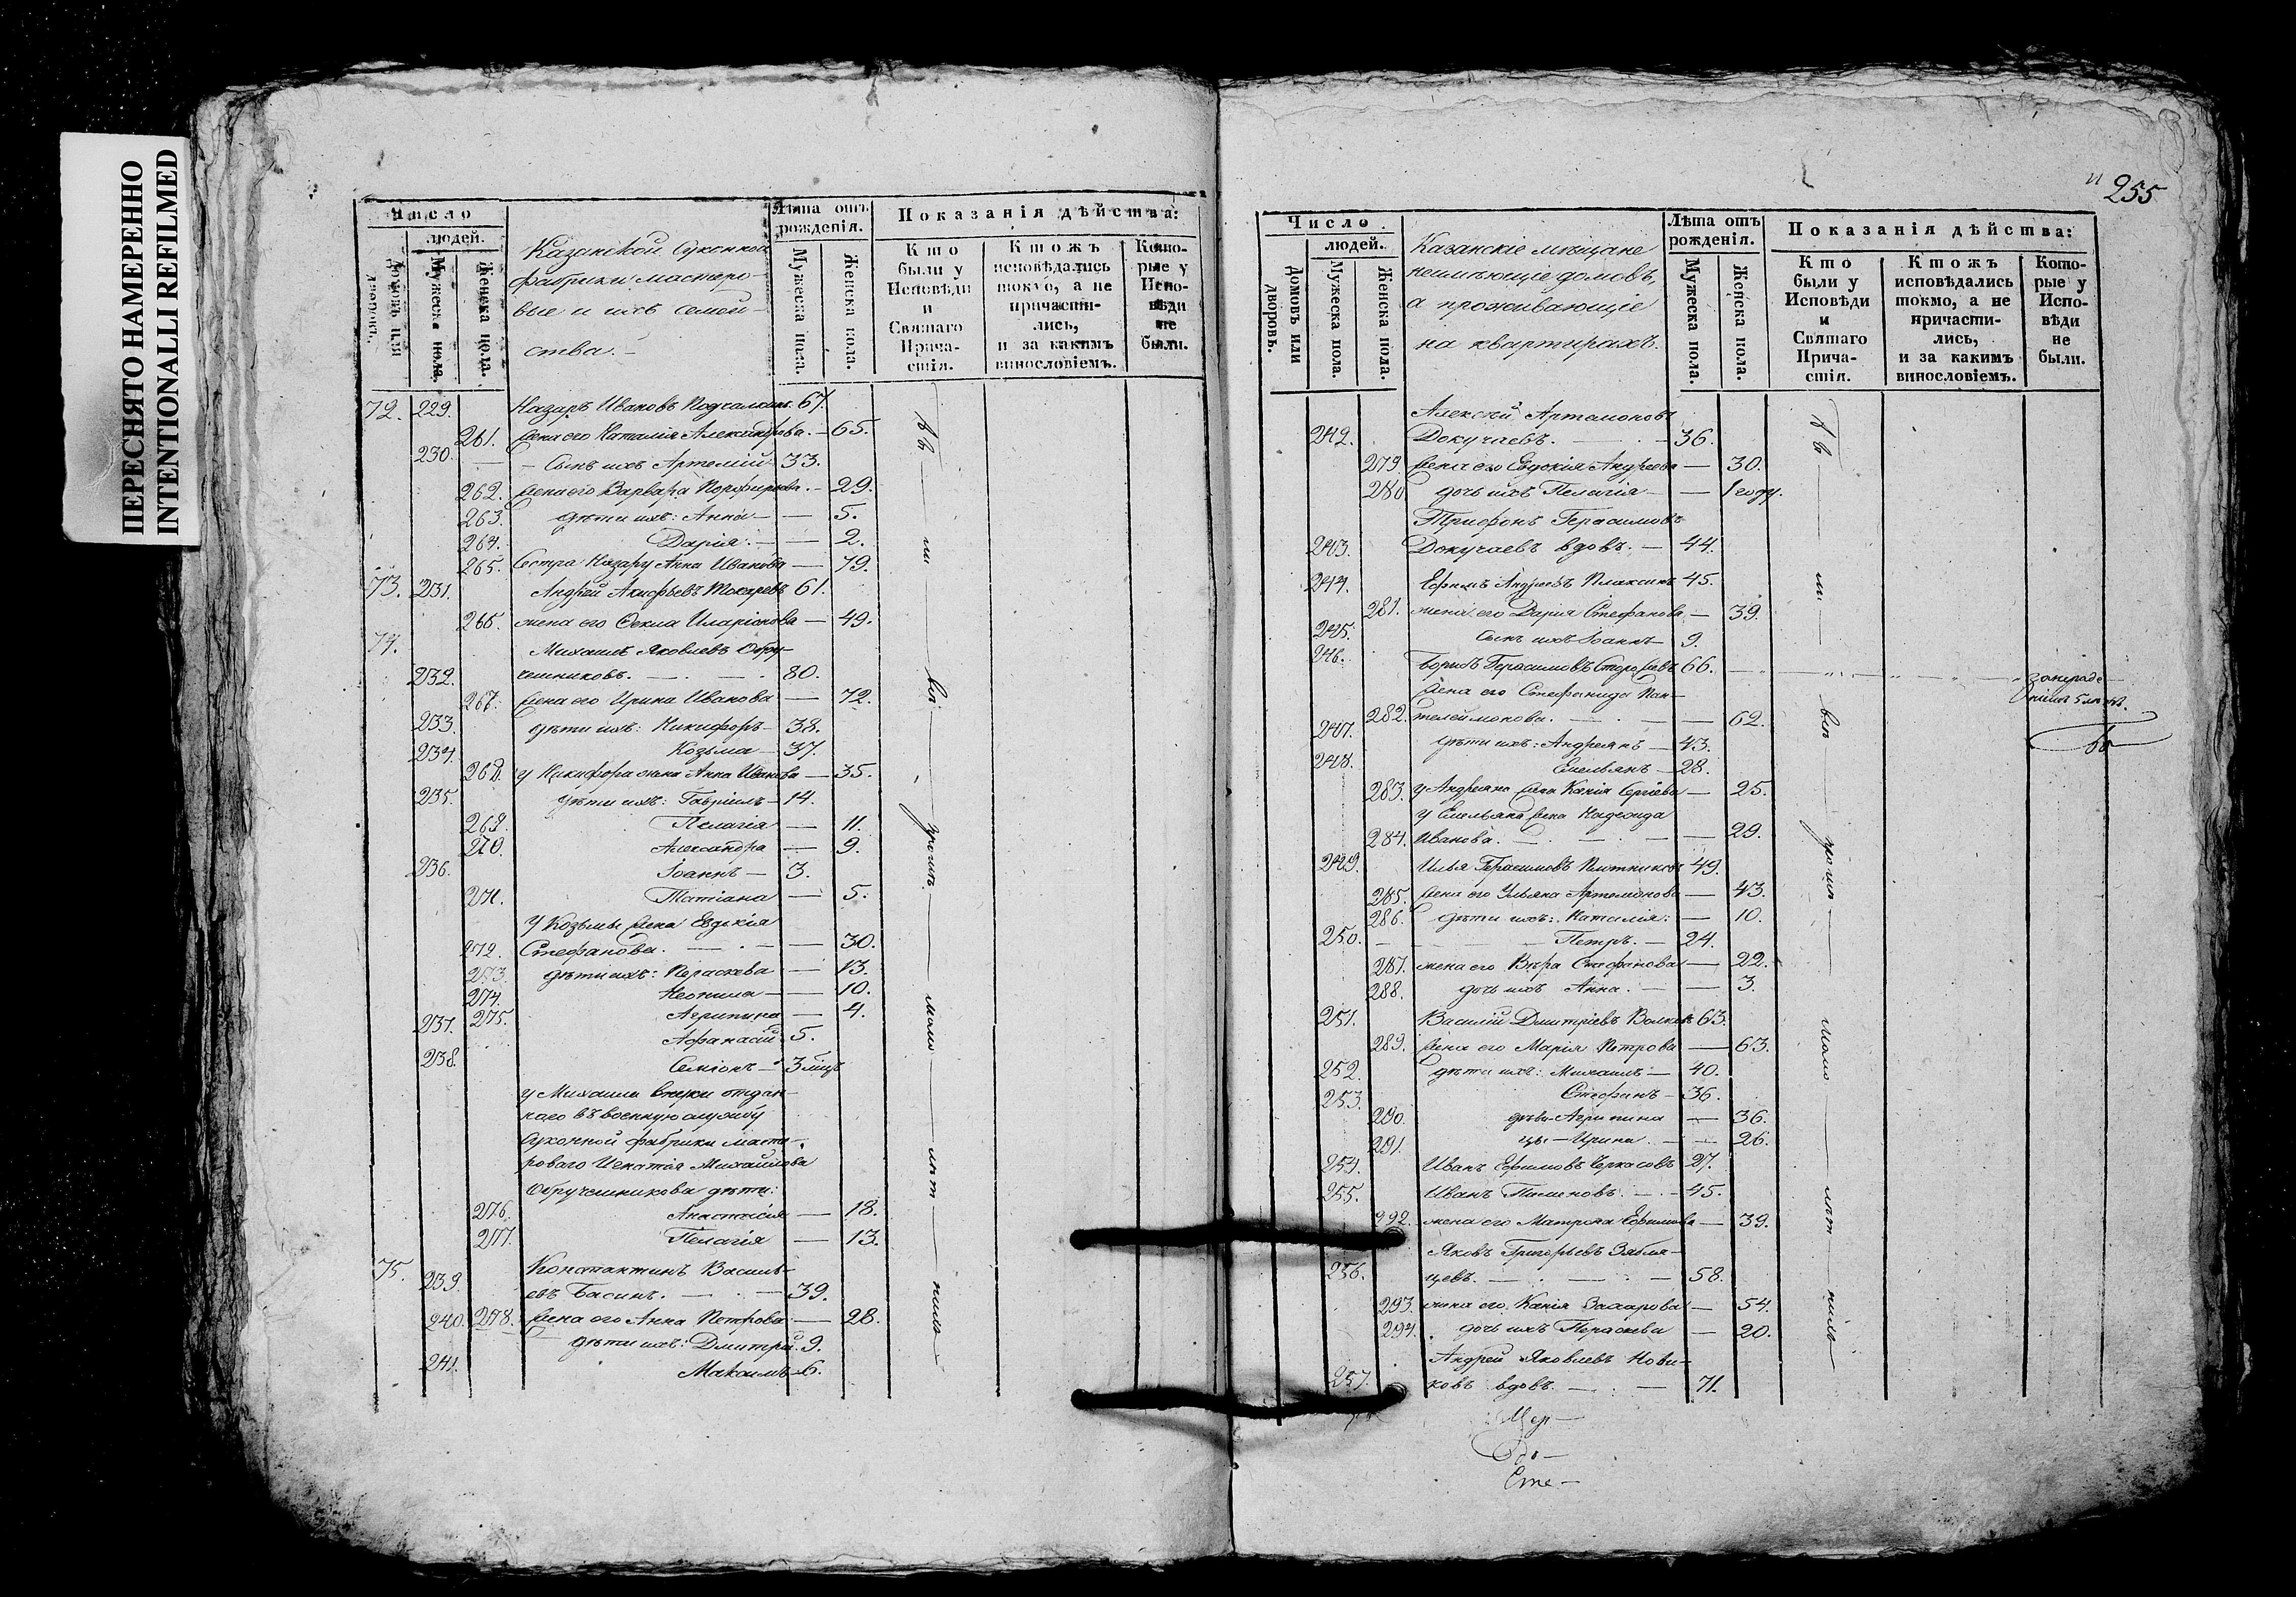 ПЕРЕСНЯТО НАМЕРЕННО
INTENTIONALLI REFILMED
Число
людей.
Домовъ или дворовъ.
Мужеска пола.
Женска пола.
Казанской Суконной
фабрики мастеро-
вые и ихъ семей-
ства.
Лѣта отъ рожденія.
Мужеска пола.
Женска пола.
Показанія дѣйства:
Кто были у Исповѣди и Святаго Причастія.
Ктожъ исповѣдались токмо, а не причастились, и за какимъ винословіемъ.
Которые у Исповѣди не были.
72. 229. Назаръ Ивановъ 67.
261. жена его Наталія Александрова. — 65.
230. — Сынъ ихъ Артемій 33.
262. жена его Варвара Порфирьева. — 29.
263. дѣти ихъ: Анна — — 5.
264. Дарія. — — 2.
265. Сестра Назару Анна Иванова — 79.
73. 231. Андрей Токаревъ 61.
266. жена его Ѳекла Иларіонова — 49.
74. Михаилъ Яковлевъ Обру-
232. чешниковъ. — . — . 80.
267. жена его Ирина Иванова — 72.
233. дѣти ихъ: Никифоръ — 38.
234. Козьма — 37.
268. у Никифора жена Анна Иванова — 35.
235. дѣти ихъ: Гавріилъ — 14.
269. Пелагія — 11.
270. Александра — 9.
236. Іоаннъ — 3.
271. Татіана — 5.
У Козьмы жена Евдокія
272. Стефанова. — . — — 30.
273. дѣти ихъ: Параскева — 13.
274. Неонила — — 10.
237. 275. Агрипина — 4.
Афанасій 5.
238. Семіонъ — 3 мѣц.
у Михаила внуки отдан-
наго въ военную службу
Суконной фабрики масте-
роваго Игнатія Михайлова
Обручешникова дѣти:
276. Анастасія — 18.
277. Пелагія — 13.
75. Константинъ Василь-
239. евъ Басинъ. — . — 39.
240. 278. жена его Анна Петрова — 28.
дѣти ихъ: Дмитрій. 9.
241. Максимъ — 6.
255
Число
людей.
Домовъ или дворовъ.
Мужеска пола.
Женска пола.
Казанскіе мѣщане
неимѣющіе домовъ,
а проживающіе
на квартирахъ.
Лѣта отъ рожденія.
Мужеска пола.
Женска пола.
Показанія дѣйства:
Кто были у Исповѣди и Святаго Причастія.
Ктожъ исповѣдались токмо, а не причастились, и за какимъ винословіемъ.
Которые у Исповѣди не были.
Алексѣй Артамоновъ
242. Докучаевъ. — . — 36.
279. жена его Евдокія Андреева — 30.
280 дочь ихъ Пелагія — — 1 году.
Трифонъ Герасимовъ
243. Докучаевъ вдовъ. — 44.
244. Ефимъ Андреевъ Плаксинъ 45.
281. жена его Дарія Стефанова — 39.
245. Сынъ ихъ Іоаннъ — 9.
246. Борисъ Герасимовъ Сторожевъ 66.
жена его Стефанида Пан-
282. телеймонова. — . — — 62.
247. дѣти ихъ: Андреянъ — 43.
248. Емельянъ — 28.
283. у Андреяна жена Ксенія Сергіева — 25.
у Емельяна жена Надежда
284. Иванова. — . — — 29.
249. Илья Герасимовъ Плотниковъ 49.
285. жена его Ульяна Артамонова — 43.
286. дѣти ихъ: Наталія: — 10.
250. Петръ. — 24.
287. жена его Вѣра Стефанова — 22.
288. дочь ихъ Анна. — — 3.
251. Василій Дмитріевъ Волковъ 63.
289. жена его Марія Петрова — 63.
252. дѣти ихъ: Михаилъ — 40.
253. Стефанъ — 36.
290. дѣви- Агрипина — 36.
291. цы — Ирина. — — 26.
254. Иванъ Ефимовъ Черкасовъ 27.
255. Иванъ Пименовъ. — . — 45.
292. жена его Матрона Ефимова — 39.
Яковъ Григорьевъ Зябли-
256. цевъ. — . — : — 58.
293. жена его Ксенія Захарова — 54.
294. дочь ихъ Параскева — 20.
Андрей Яковлевъ Нови-
257. ковъ вдовъ. — . — 71.